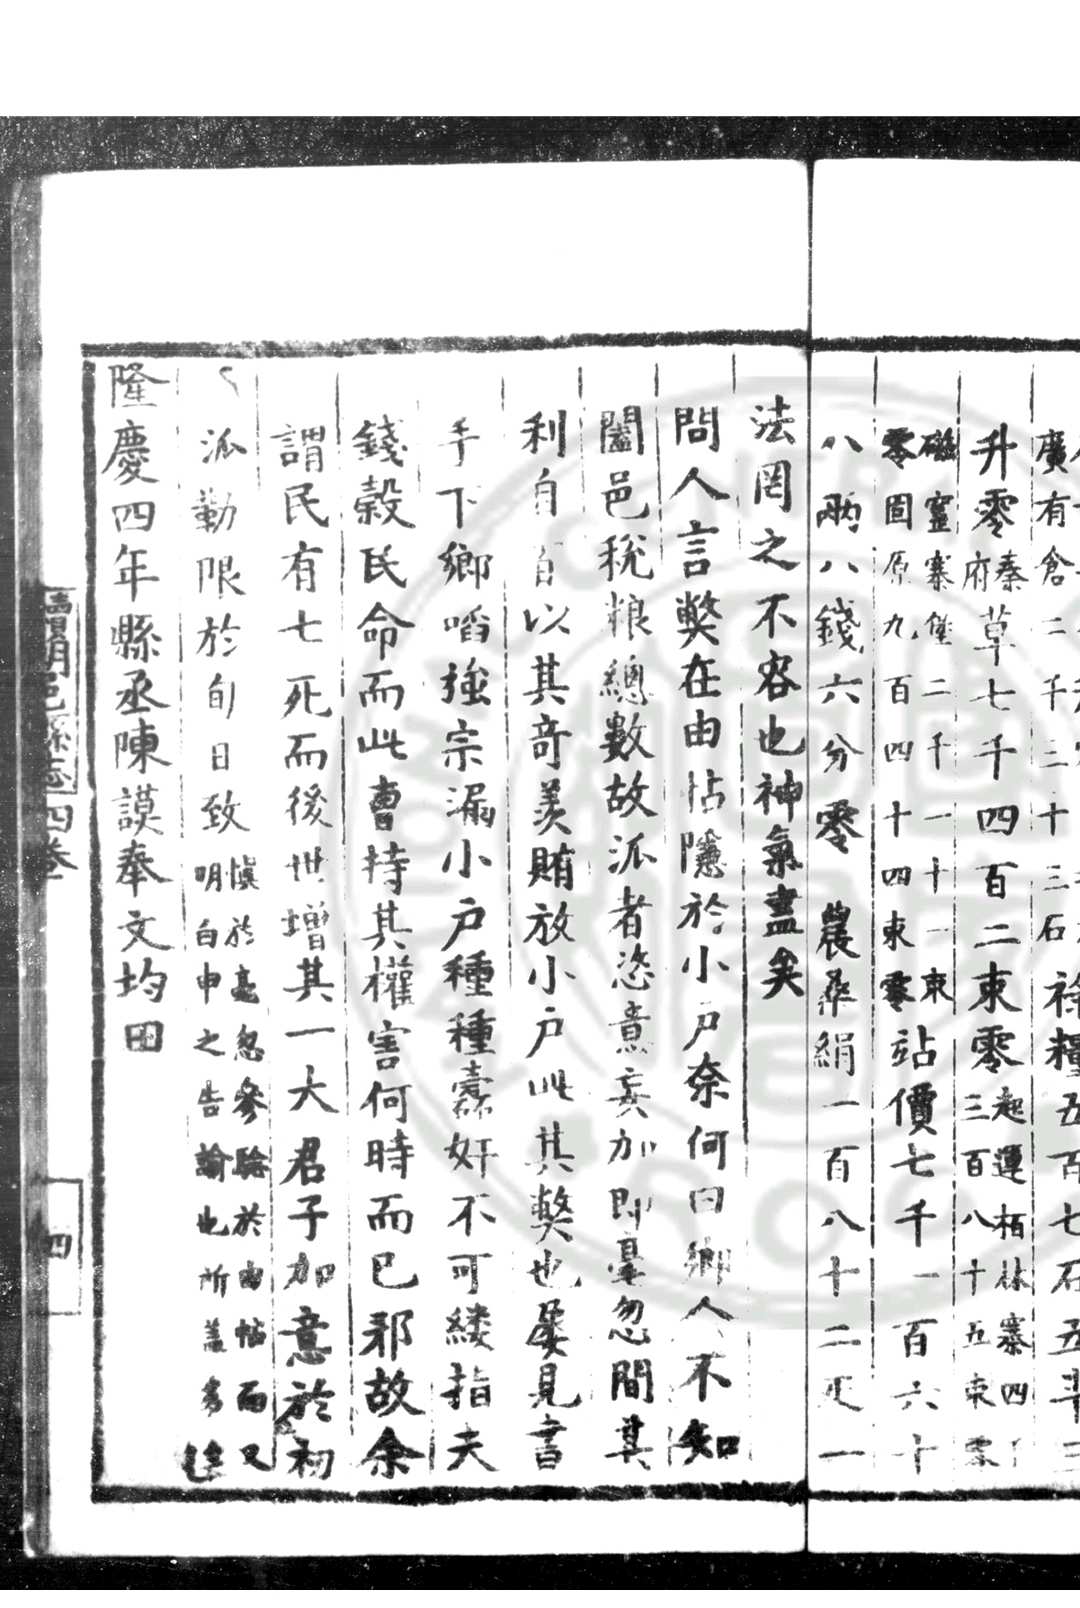 廣有倉二千二十三石　祿糧五百七石五斗三
升零秦府草七千四百二束零起運栢林寨四　三百八十五束零
磁窰寨堡二千一十一束零固原九百四十四束零站價七千一百六十
八兩八錢六分零　農桑絹一百八十二疋一
法罔之不容也神氣盡矣
問人言獘在由帖隱於小戶奈何曰鄉人不知
闔邑稅粮總數故派者恣意妄加即毫忽間其
利自自以其竒羨賄放小戶此其獘也屡見書
手下鄉啗強宗漏小戶種種蠹奸不可縷指夫
錢穀民命而此曹持其權害何時而已邪故余
謂民有七死而後世增其一大君子加意於初
派勤限於旬日致慎於毫忽參驗於由帖而又明白申之告諭也所蓋多
隆慶四年縣丞陳謨奉文均田
朝邑縣志四卷
四